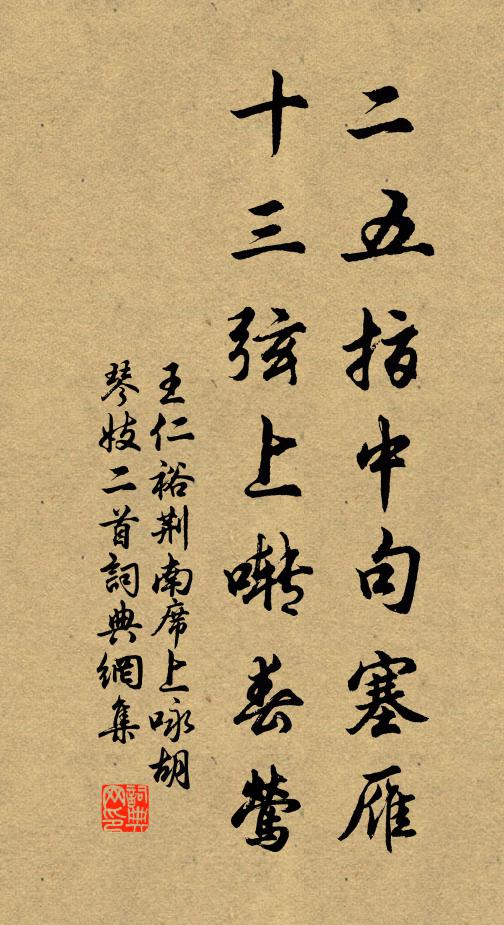 二五指中句塞雁
十三弦上啭春莺
王仁裕荆南席上咏胡
琴妓二首词典網集
詞典網印